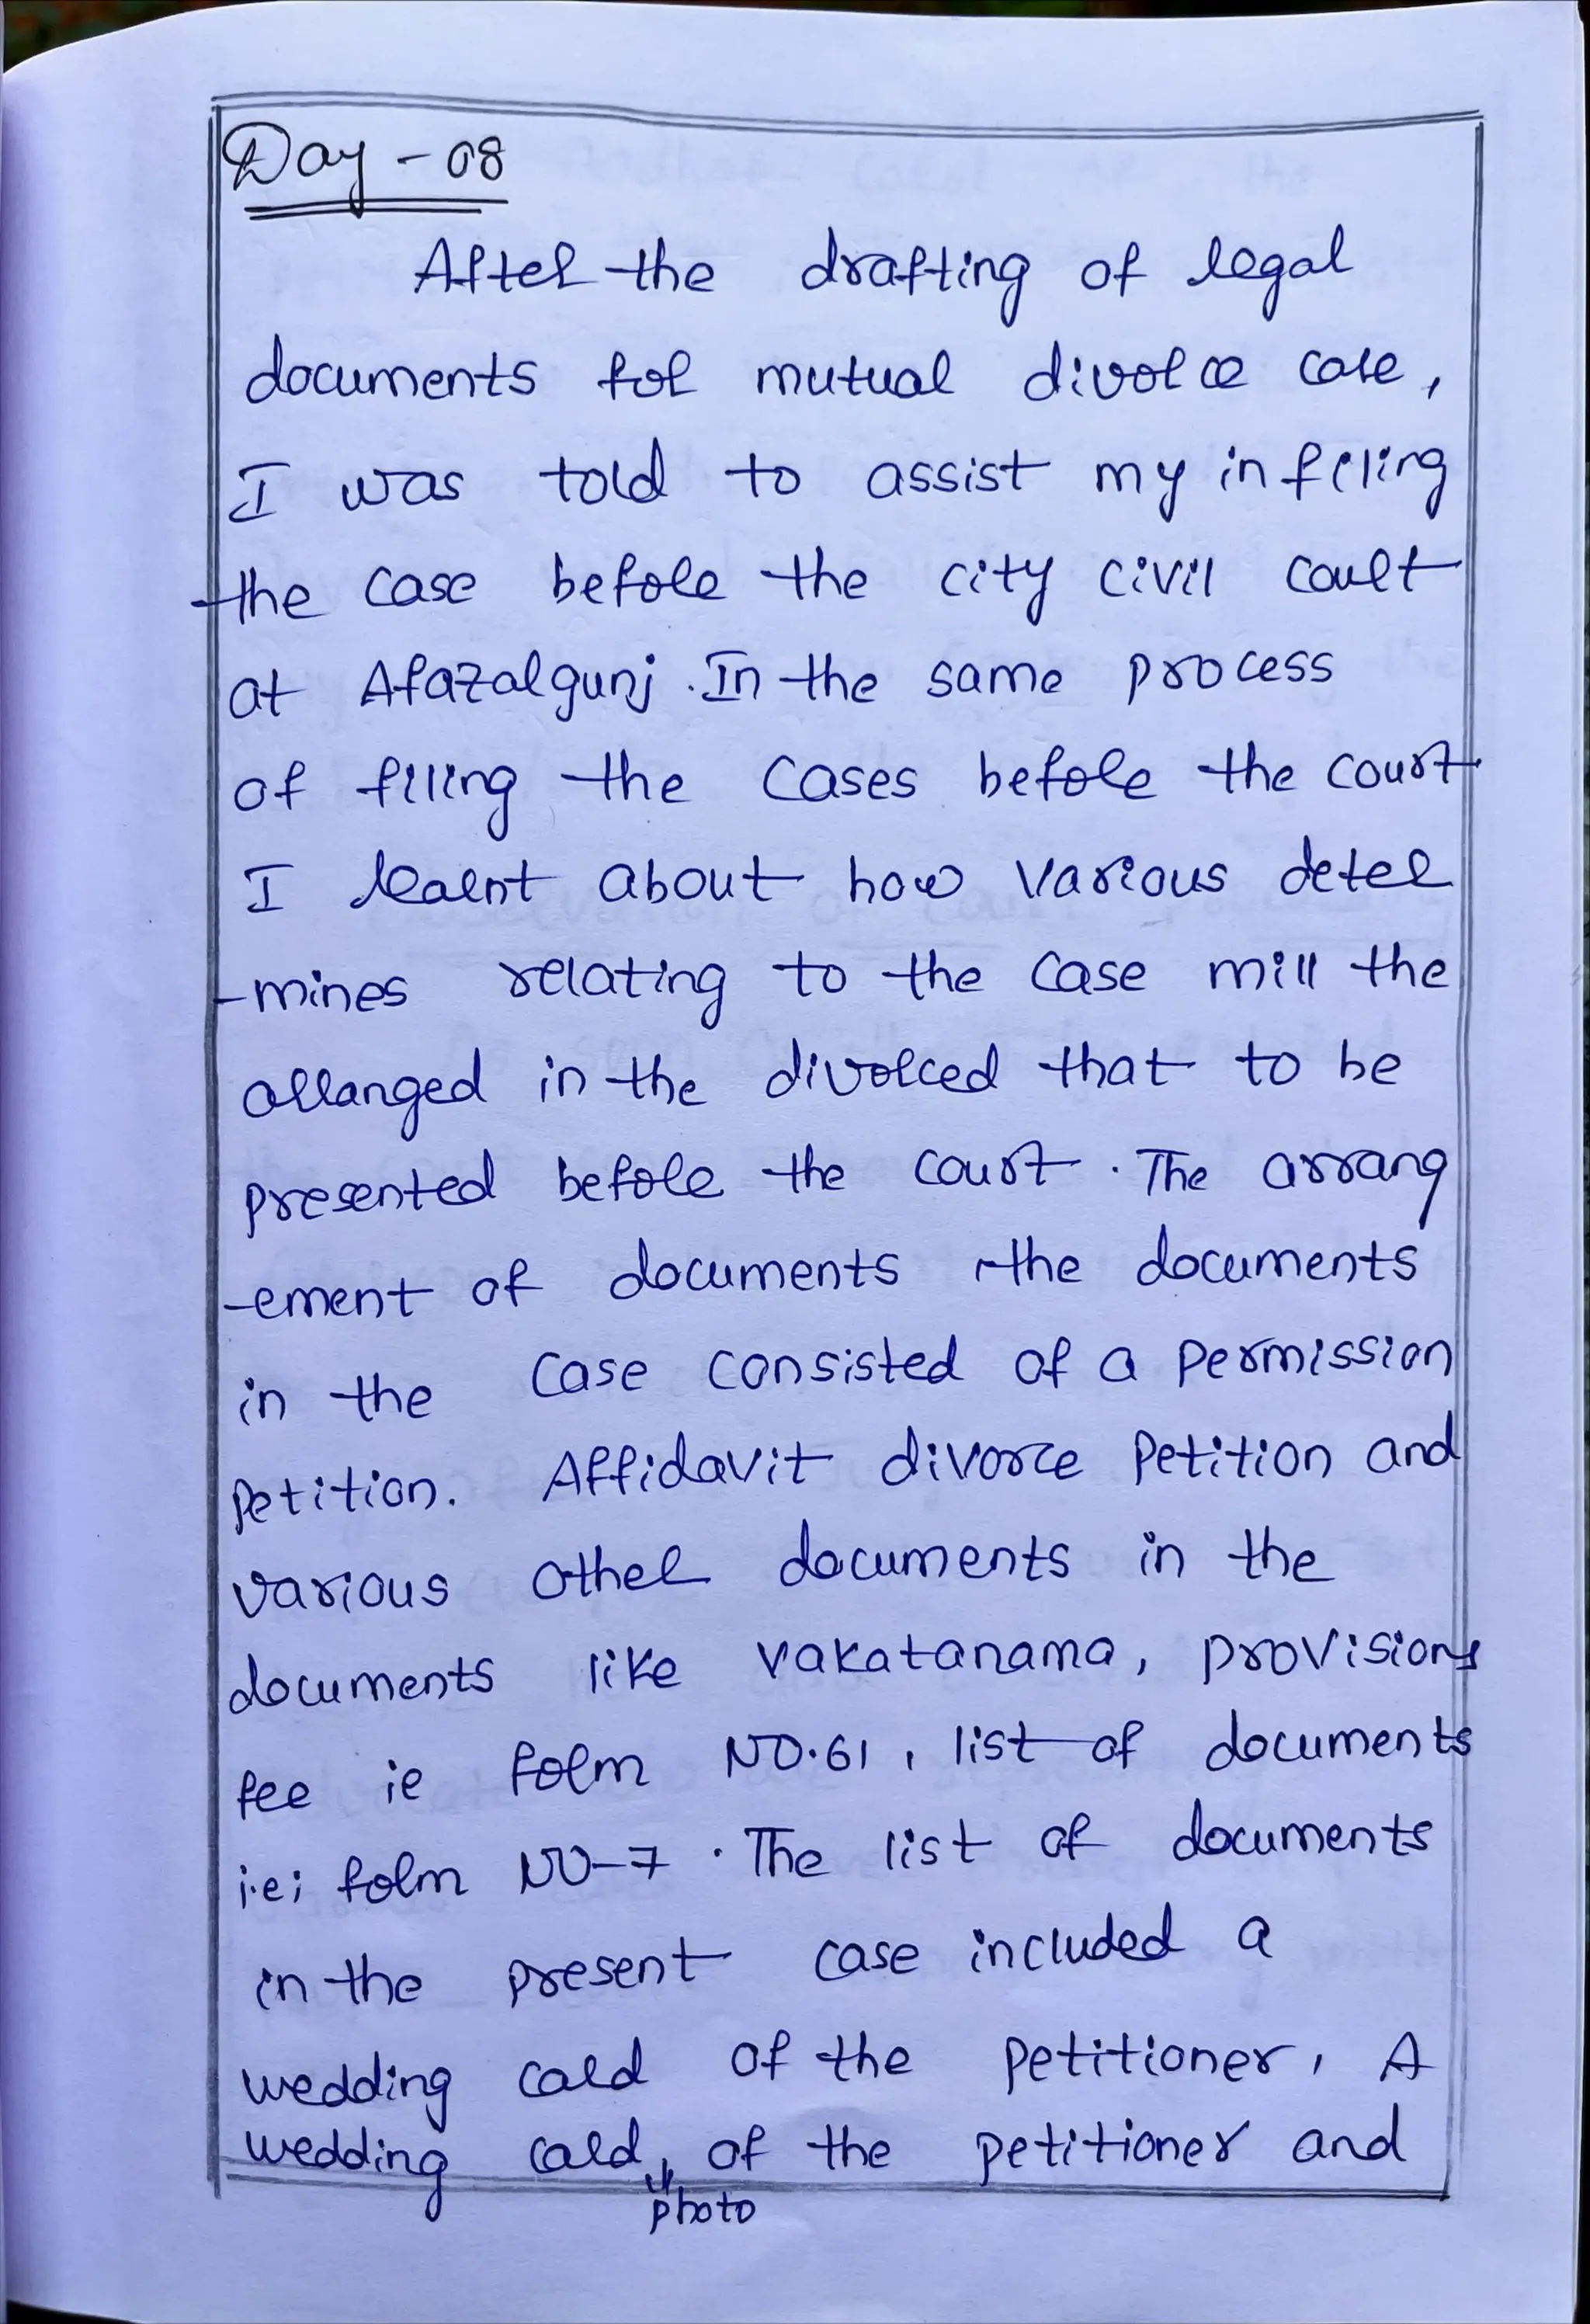 Day - 08
After the drafting of legal
documents for mutual divorce case,
I was told to assist my in filing
the case before the city civil court
at Afazalgunj. In the same process
of filing the cases before the court
I learnt about how various deter
-mines relating to the case mill the
arranged in the divorced that to be
presented before the court. The arrang
-ement of documents the documents
in the case consisted of a permission
petition. Affidavit divorce petition and
various other documents in the
documents like vakatanama, provisions
fee ie form NO.61, list of documents
i.e; form NO-7. The list of documents
in the present case included a
wedding card of the petitioner, A
wedding card, of the petitioner and
photo